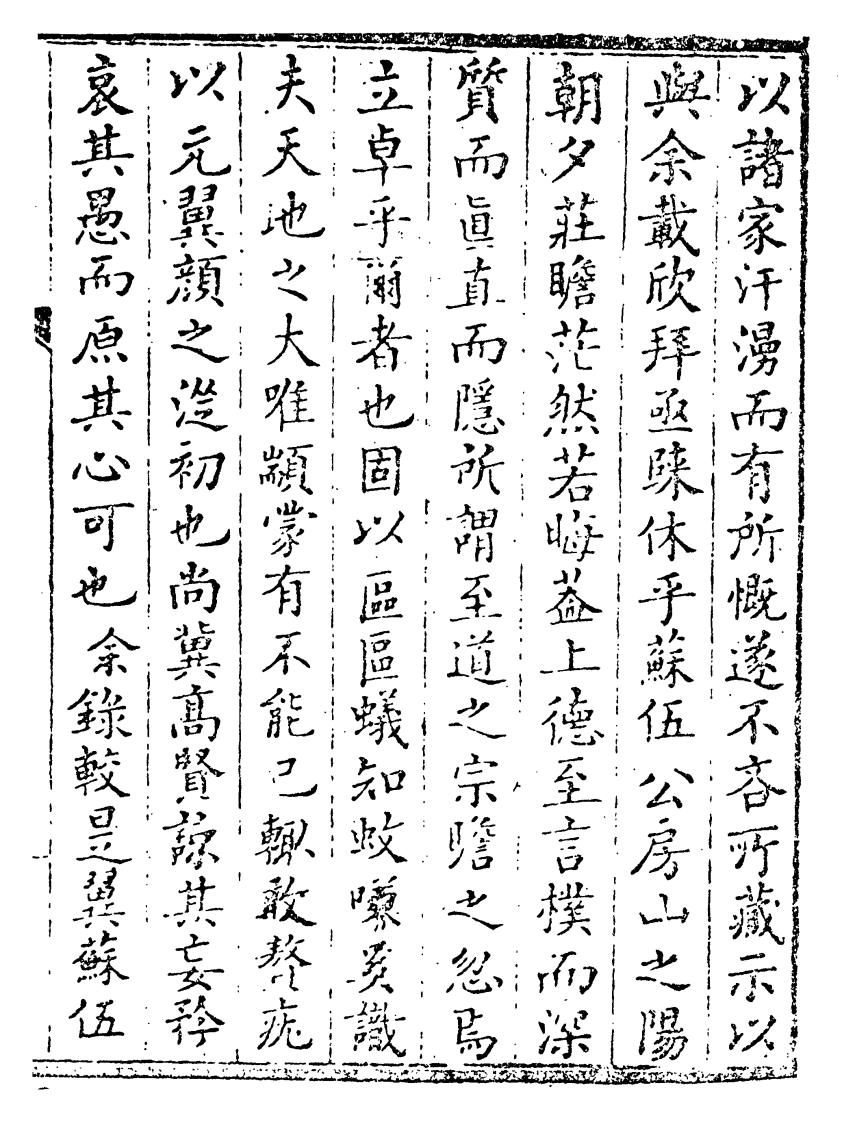 以諸家汗漫而有所慨遂不吝所藏示以
與余載欣拜亟踈休乎蘇伍公房山之陽
朝夕莊瞻茫然若晦葢上德至言樸而深
質而眞直而隱所謂至道之宗瞻之忽焉
立卓乎爾者也固以區區蟻知蚊㗘奚識
夫天地之大唯顓蒙有不能已輙敢贅疣
以元翼顔之從初也尚冀髙賢諒其妄矜
哀其愚而原其心可也余錄較是翼蘇伍